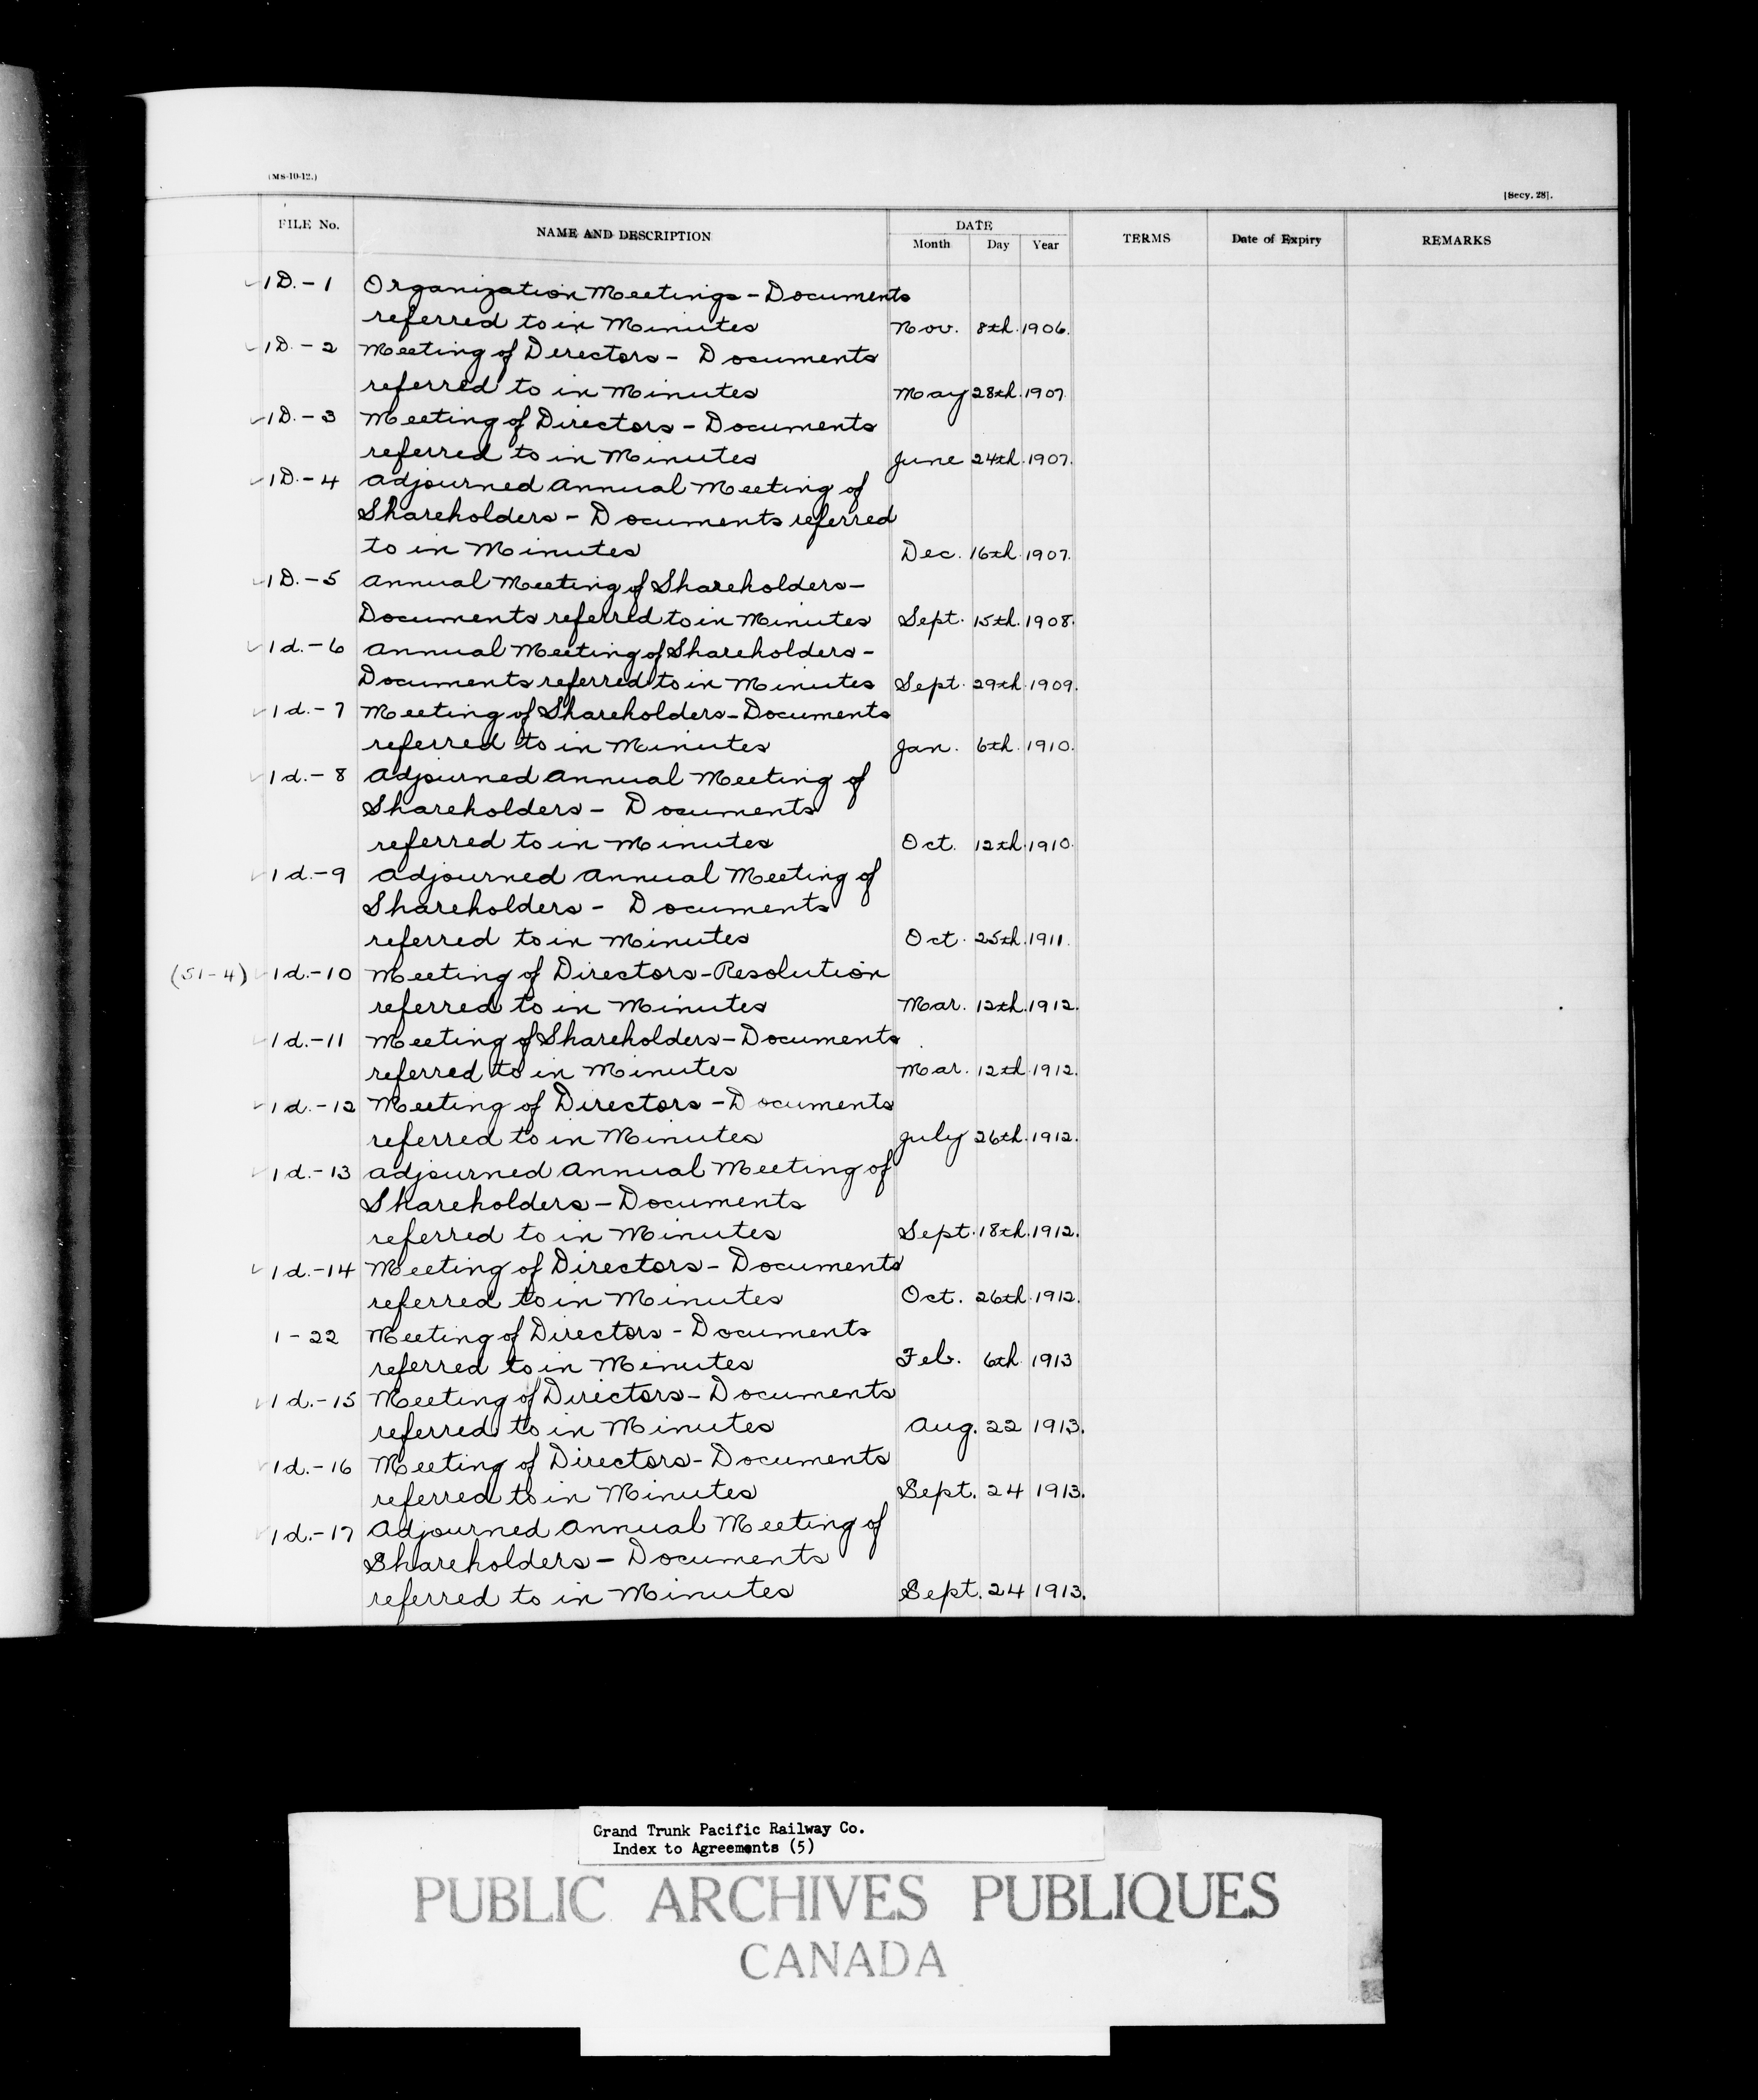 (MS-10-12.)
[Secy. 28].
FILE No. NAME AND DESCRIPTION DATE TERMS Date of Expiry REMARKS
Month Day Year
1D.-1 Organization Meetings - Documents
referred to in Minutes Nov. 8th. 1906.
1D.-2 Meeting of Directors - Documents
referred to in Minutes May 28th. 1907.
1D.-3 Meeting of Directors - Documents
referred to in Minutes June 24th. 1907.
1D.-4 Adjourned Annual Meeting of
Shareholders - Documents referred
to in Minutes Dec. 16th. 1907.
1D.-5 Annual Meeting of Shareholders -
Documents referred to in Minutes Sept. 15th. 1908.
1d.-6 Annual Meeting of Shareholders -
Documents referred to in Minutes Sept. 29th. 1909.
1d.-7 Meeting of Shareholders - Documents
referred to in Minutes Jan. 6th. 1910.
1d.-8 Adjourned Annual Meeting of
Shareholders - Documents
referred to in Minutes Oct. 12th. 1910.
1d.-9 Adjourned Annual Meeting of
Shareholders - Documents
referred to in Minutes Oct. 25th. 1911.
(51-4) 1d.-10 Meeting of Directors - Resolution
referred to in Minutes Mar. 12th. 1912.
1d.-11 Meeting of Shareholders - Documents
referred to in Minutes Mar. 12th. 1912.
1d.-12 Meeting of Directors - Documents
referred to in Minutes July 26th. 1912.
1d.-13 Adjourned Annual Meeting of
Shareholders - Documents
referred to in Minutes Sept. 18th. 1912.
1d.-14 Meeting of Directors - Documents
referred to in Minutes Oct. 26th. 1912.
1-22 Meeting of Directors - Documents
referred to in Minutes Feb. 6th. 1913
1d.-15 Meeting of Directors - Documents
referred to in Minutes Aug. 22 1913.
1d.-16 Meeting of Directors - Documents
referred to in Minutes Sept. 24 1913.
1d.-17 Adjourned Annual Meeting of
Shareholders - Documents
referred to in Minutes Sept. 24 1913.
Grand Trunk Pacific Railway Co.
Index to Agreements (5)
PUBLIC ARCHIVES PUBLIQUES
CANADA